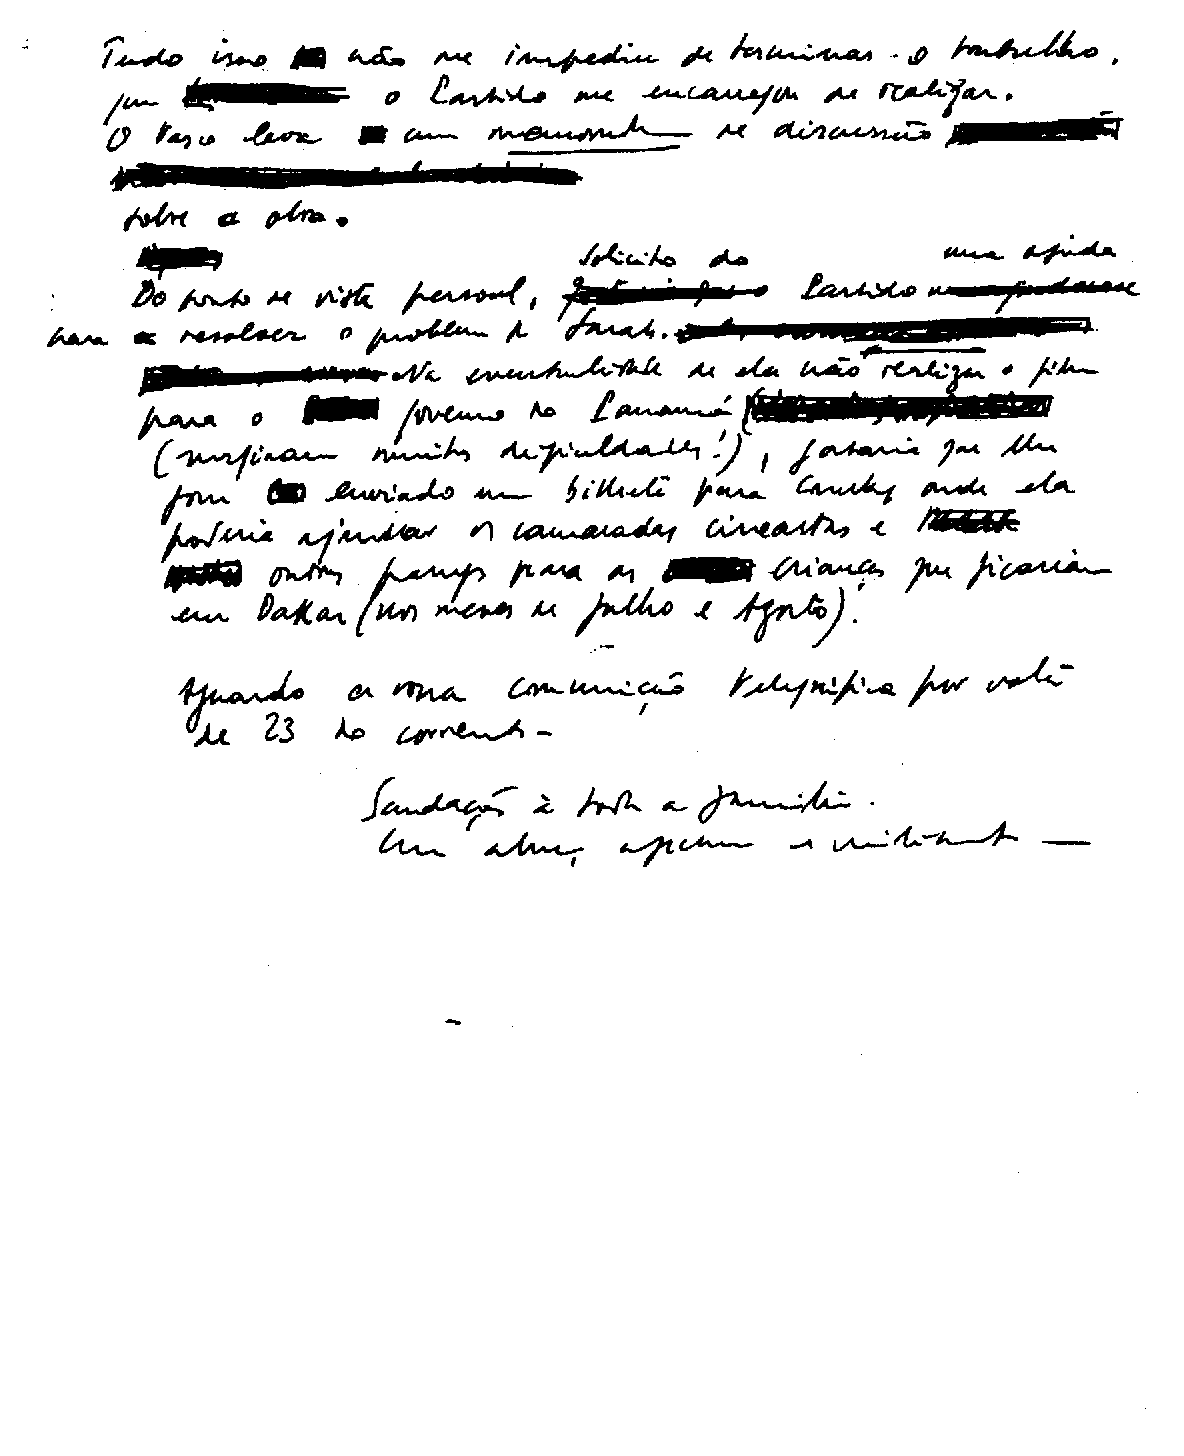 Tudo isso não me impediu de terminar o trabalho,
que o Partido me encarregou de realizar.
O Vasco leva um memorando de discussão
sobre a obra.
Solicito do uma ajuda
Do ponto de vista pessoal, Partido
para a resolver o problema de Sarah.
Na eventualidade de ela não realizar o filme
para o governo do Panamá
(surgiram muitas dificuldades!), gostaria que lhe
fosse enviado um bilhete para onde ela
poderia ajudar os camaradas cineastas e
outras para as crianças que ficariam
em Dakar (nos meses de Julho e Agosto).
Aguardo a vossa comunicação telegráfica por volta
de 23 do corrente -
Saudações à toda a família.
Um abraço